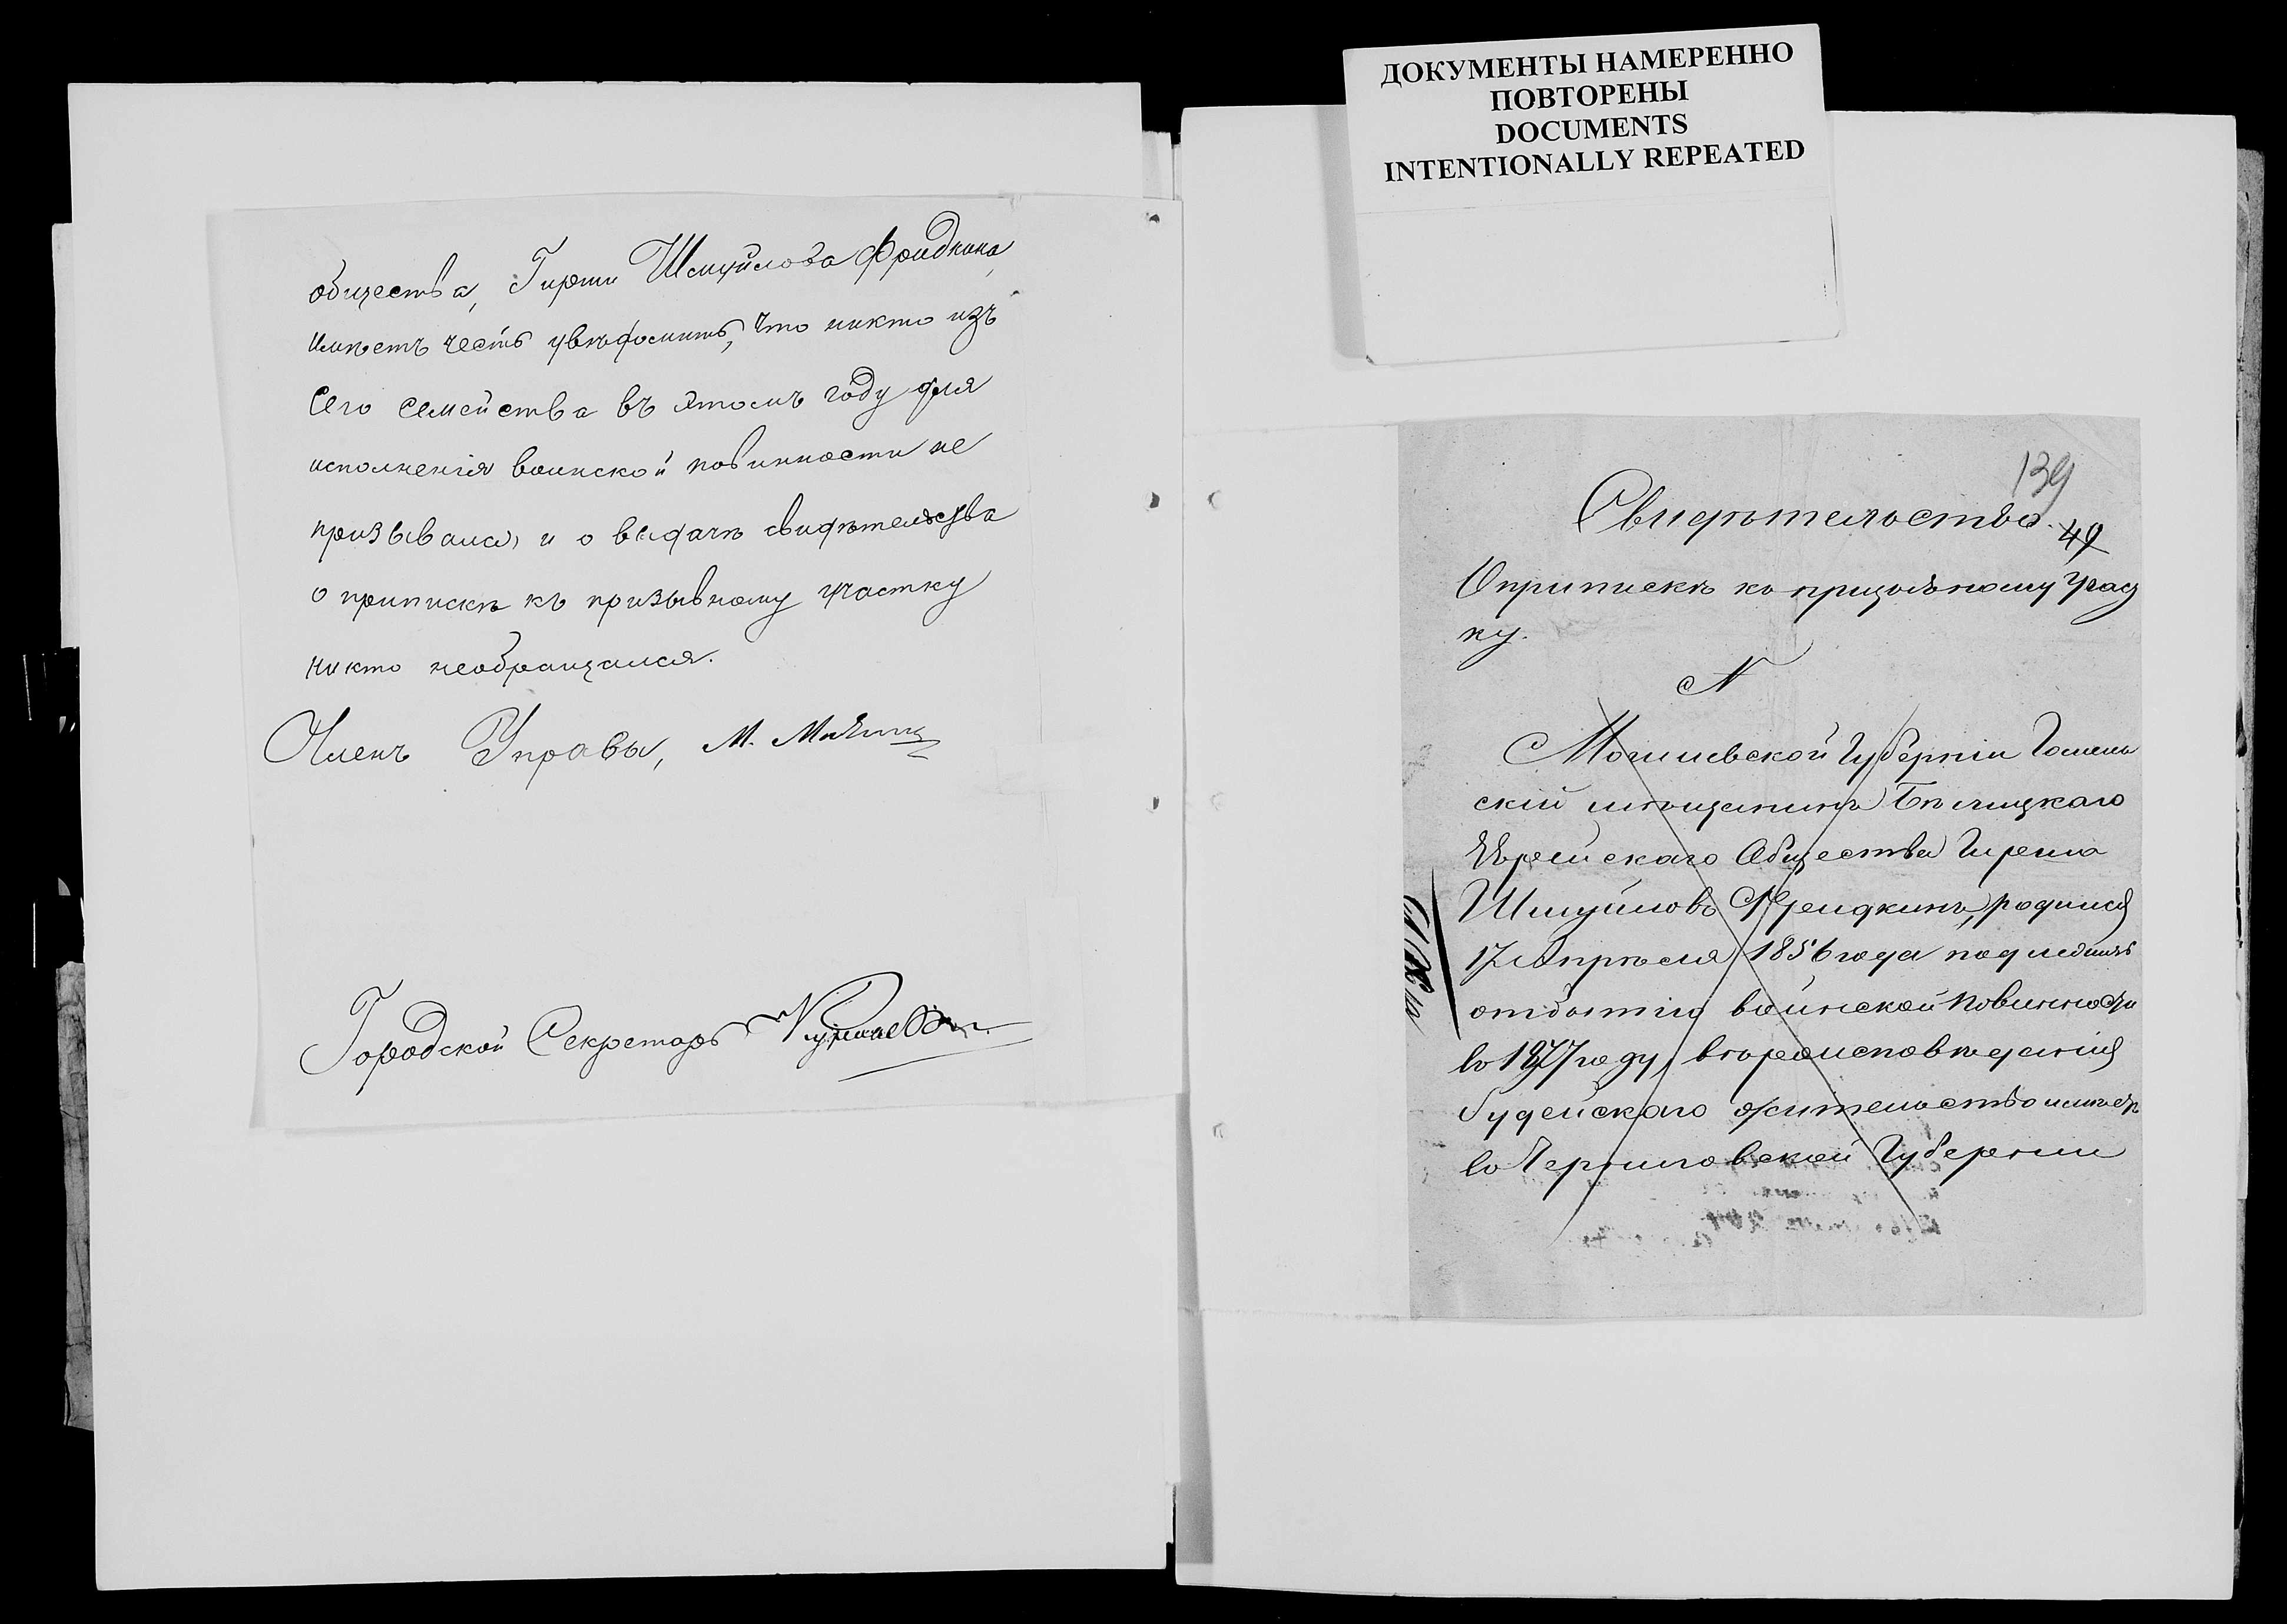 общества, Гирши Шмуйлова Фридкина,
имѣетъ честь увѣдомить, что никто изъ
сего семейства въ этомъ году для
исполненія воинской повинности не
призывался, и о выдачѣ свидѣтельства
о припискѣ къ призывному участку
никто необращался.
Членъ Управы, М.
Городской Секретарь
ДОКУМЕНТЫ НАМЕРЕННО
ПОВТОРЕНЫ
DOCUMENTS
INTENTIONALLY REPEATED
139
Свидѣтельство.
49
О припискѣ къ призывному учас
ку.
N
Могилевской Губерніи Гомель
скій мѣщанинъ Бѣлицкаго
Еврейскаго Общества Гирша
Шмуйловъ Фрейдкинъ, родился
17 Апрѣля 1856 года подлежитъ
отбытію воинской повинности
въ 1877 году, вѣроисповѣданія
Іудейскаго жительство имѣетъ
въ Черниговской Губерніи